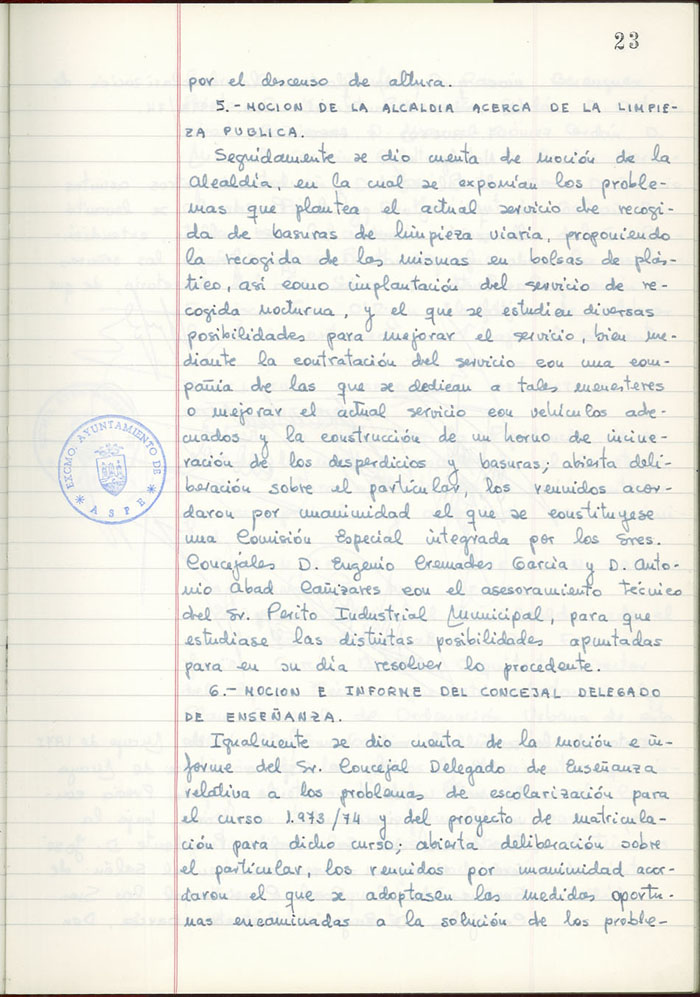 23
por el descenso de altura.
5.- MOCION DE LA ALCALDIA ACERCA DE LA LIMPIE-
ZA PUBLICA.
Seguidamente se dio cuenta de moción de la
Alcaldía, en la cual se exponían los proble-
mas que plantea el actual servicio de recogi-
da de basuras de limpieza viaria, proponiendo
la recogida de las mismas en bolsas de plás-
tico, así como implantación del servicio de re-
cogida nocturna, y el que se estudien diversas
posibilidades para mejorar el servicio, bien me-
diante la contratación del servicio con una com-
pañía de las que se dedican a tales menesteres
o mejorar el actual servicio con vehículos ade-
cuados y la construcción de un horno de incine-
ración de los desperdicios y basuras; abierta deli-
beración sobre el particular, los reunidos acor-
daron por unanimidad el que se constituyese
una Comisión Especial integrada por los Sres.
Concejales D. Eugenio Cremades García y D. Anto-
nio Abad Cañizares con el asesoramiento técnico
del Sr. Perito Industrial Municipal, para que
estudiase las distintas posibilidades apuntadas
para en su día resolver lo procedente.
6.- MOCION E INFORME DEL CONCEJAL DELEGADO
DE ENSEÑANZA.
Igualmente se dio cuenta de la moción e in-
forme del Sr. Concejal Delegado de Enseñanza
relativa a los problemas de escolarización para
el curso 1.973/74 y del proyecto de matricula-
ción para dicho curso; abierta deliberación sobre
el particular, los reunidos por unanimidad acor-
daron el que se adoptasen las medidas oportu-
nas encaminadas a la solución de los proble-
EXCMO. AYUNTAMIENTO DE
ASPE